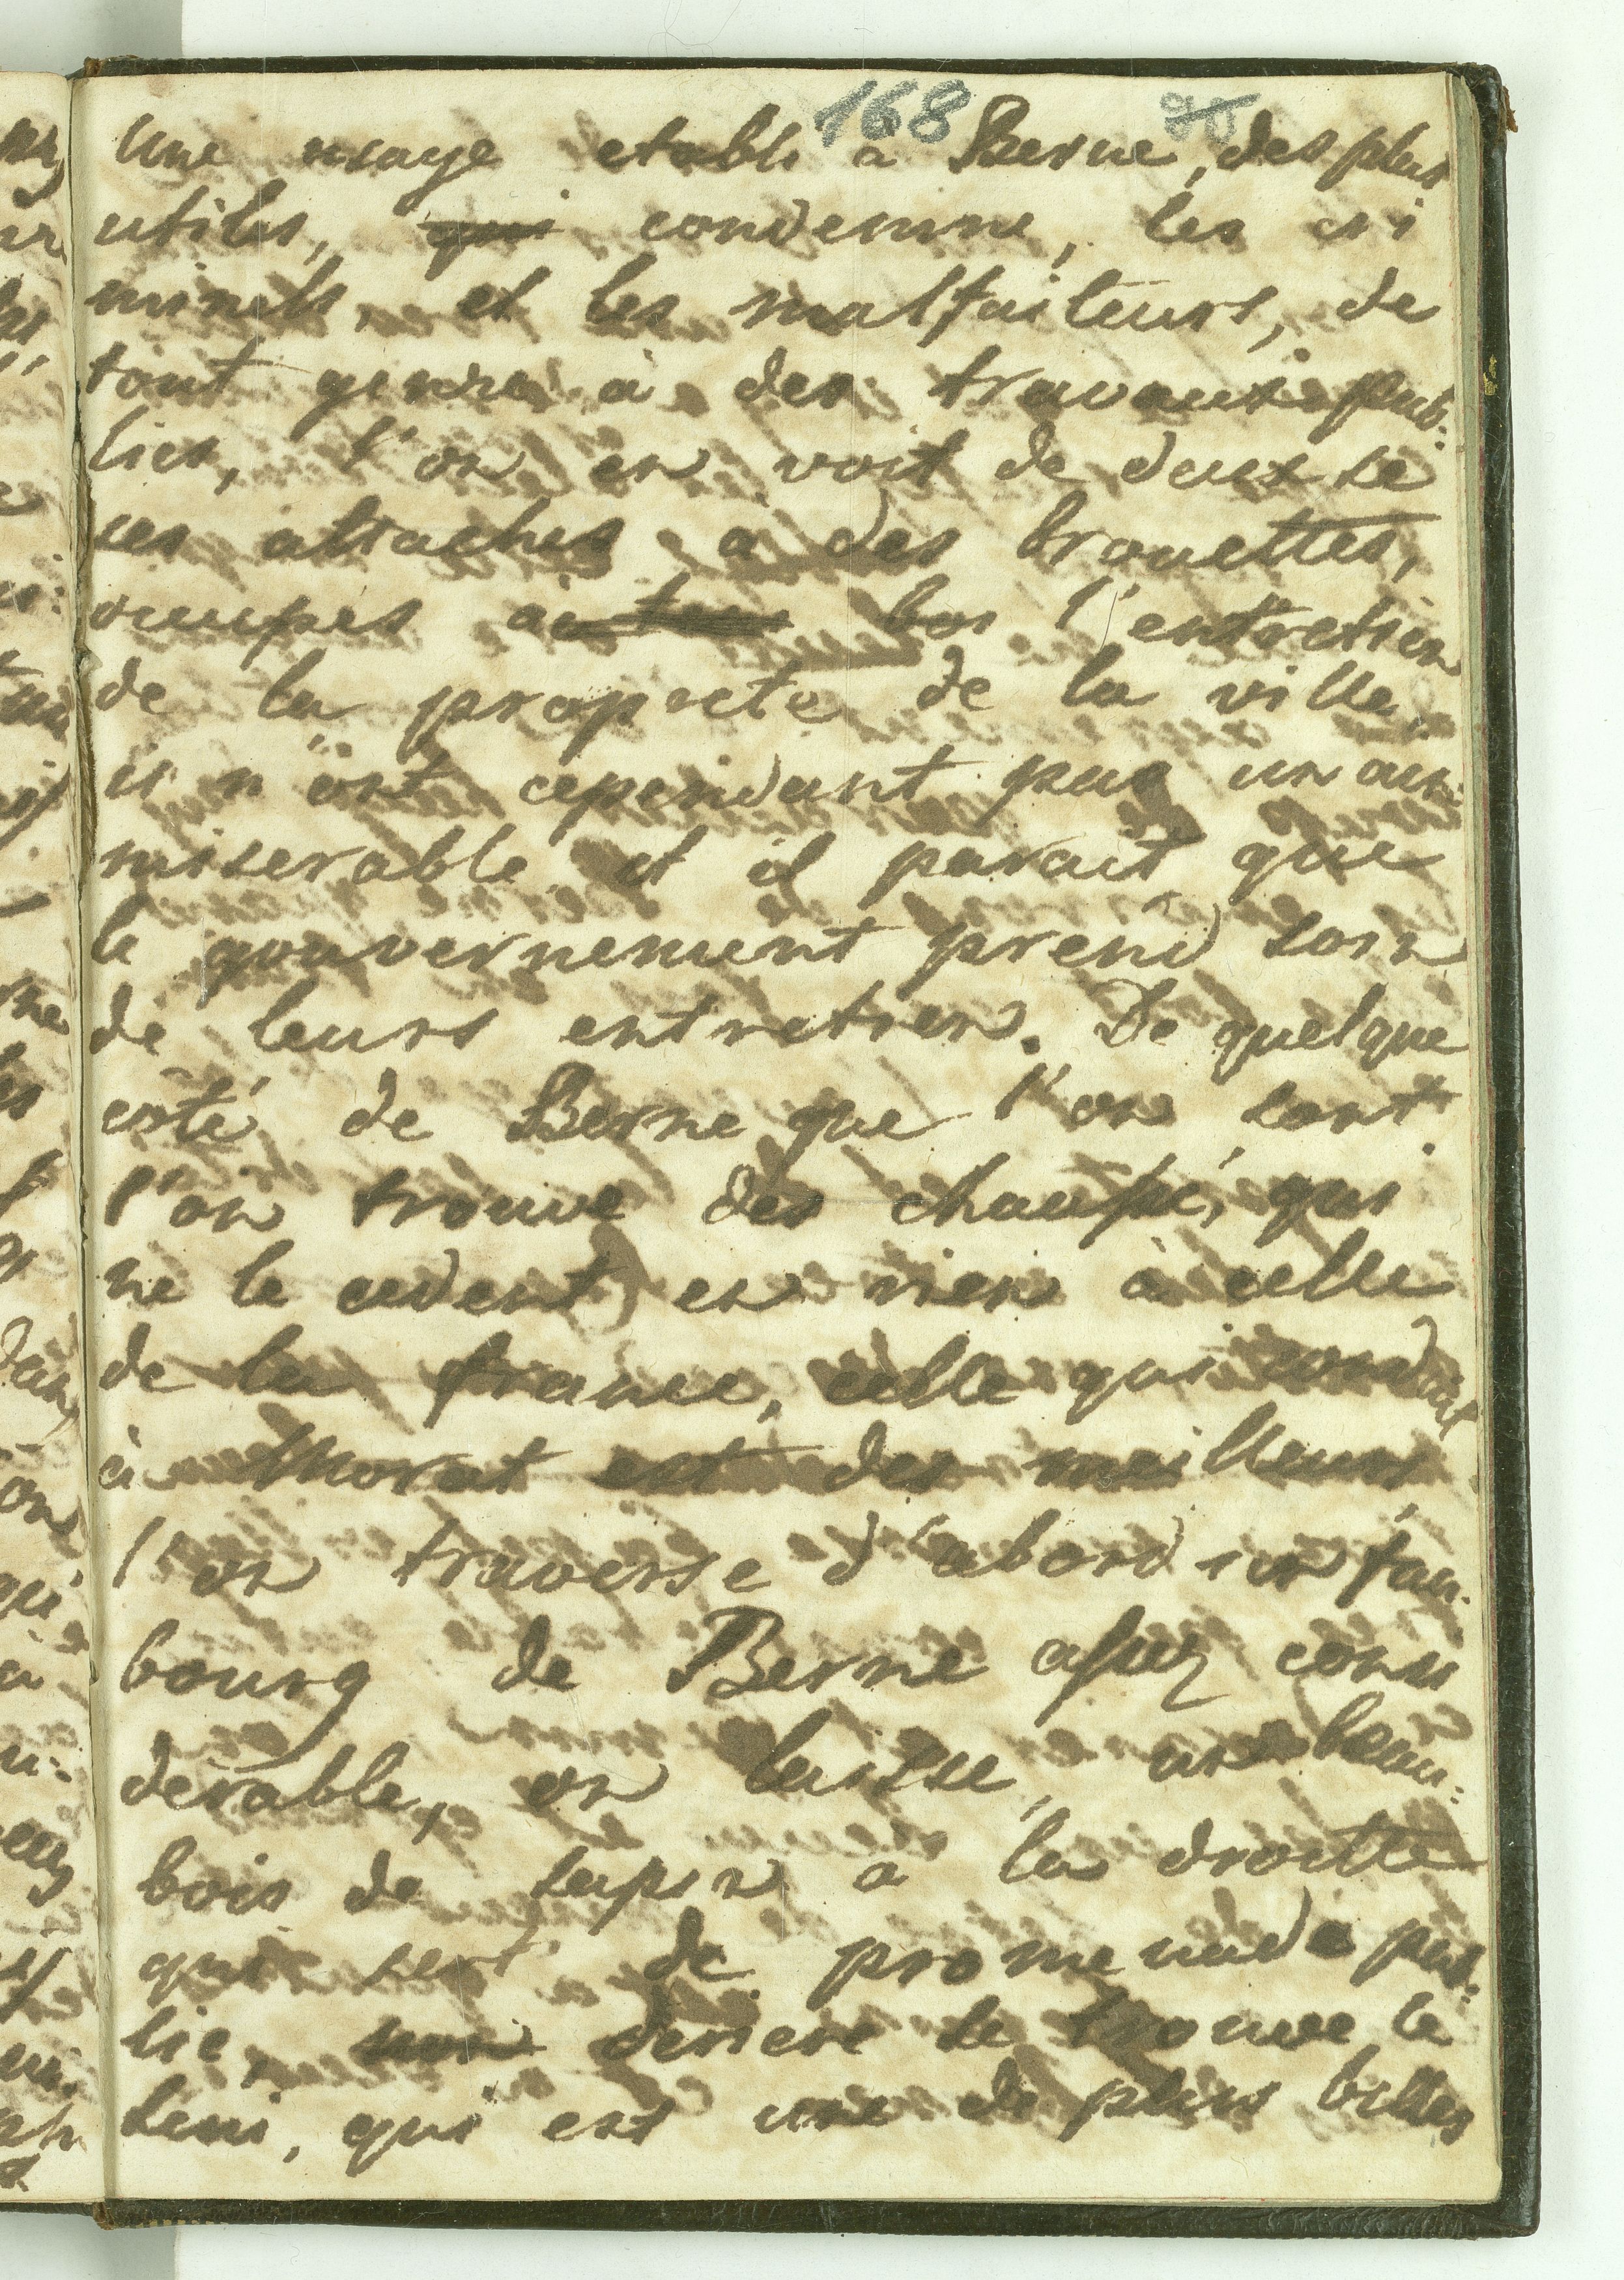 168
Une usage etabli a Berne, des plus
utiles, qui condemne, les cri
minels, et les malfaiteurs, de
tout genre à des travaux pub:
lics, l'on en voit de deux se
xes attaches a des brouettes,
occupés à l'entretien
de la propreté de la ville,
ils n'ont cependant pas un air
miserable et il parait que
le gouvernement prend soin
de leurs entretien. De quelque
coté de Berne que l'on sort
l'on trouve des chaussé, qui
ne le cedent en rien à celle
de la france, celle qui conduit
à Morat est des meilleurs
l'on traverse d'abord un fau:
bourg de Berne assez consi
derable, on laisse, un beau:
bois de sapin a la droitte
qui sert de promenade pub:
lic, derriere se trouve le
qui est une de plus belles